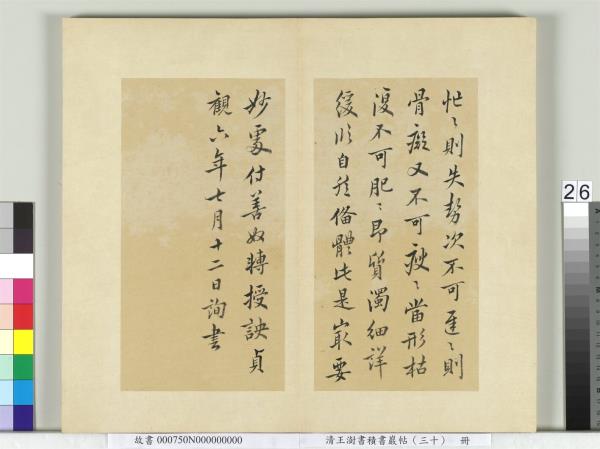 忙〻則失勢次不可遲〻則
骨癡又不可瘦〻當形枯
復不可肥〻即質濁細詳
緩臨自然俻體此是最要
妙處付善奴轉授訣貞
觀六年七月十二日詢書
26
故書 000750N000000000
清王澍書積書巖帖(三十) 冊